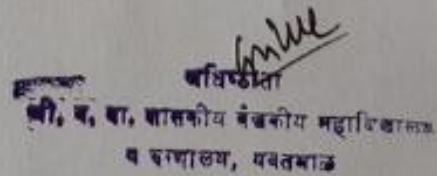 अधिष्ठाता
श्री. व. ना. शासकीय वैद्यकीय महाविद्यालय
व रुग्णालय, यवतमाळ